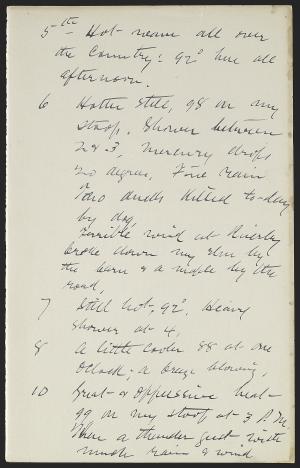 5th Hot - warm all over
the Country: 92° here all
afternoon.
6 Hotter still, 98 on my
stoop. Shower between
2 & 3, mercury drops
20 degrees, Fine rain
Two ducks killed to-day
by dog.
Terrible wind at Riverby
broke down my elm by
the barn & a maple by the
road,
7 Still hot, 92°, Heavy
shower at 4,
8 A little cooler 88 at one
Oclock; a breeze blowing,
10 Great & oppressive heat -
99 on my stoop at 3 P.M.
Then a thunder gust with
much rain & wind